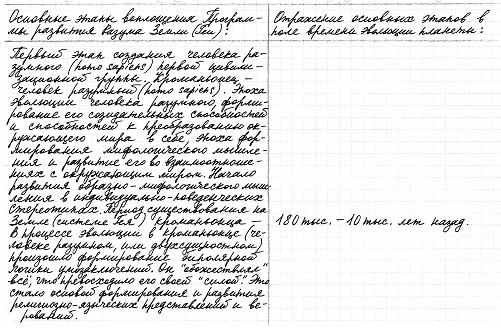 Основные этапы воплощения Програм-
мы развития Разума Земли (Геи):
Отражение основных этапов в
поле времени эволюции планеты:
Первый этап создания человека ра-
зумного (homo sapiens) первой цивили-
зационной группы. Кроманьонец -
человек разумный (homo sapiens). Эпоха
эволюции человека разумного, форми-
рование его созидательных способностей
и способностей к преобразованию ок-
ружающего мира в себе, эпоха фор-
мирования мифологического мышле-
ния и развитие его во взаимоотноше-
ниях с окружающим миром. Начало
развития образно-мифологического мыш-
ления в индивидуально-поведенческих
стереотипах. Период существования на
Земле (системе Гея) кроманьонца -
В процессе эволюции в кроманьонце (че-
ловеке разумном, или двухсущностном)
произошло формирование биполярной
логики умозаключений. Он "обожествлял"
всё, что превосходило его своей "силой". Это
стало основой формирования и развития
религиозно-языческих представлений и ве-
рований.
180 тыс. - 10 тыс. лет назад.